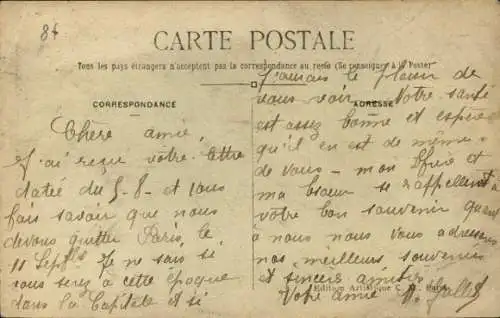 86
CARTE POSTALE
Tous les pays étrangers n'acceptent pas la correspondance au recto (Se renseigner à la Poste)
CORRESPONDANCE
ADRESSE
Chère amie,
J'ai reçu votre lettre
datée du 5-8- et vous
fais savoir que nous
devons quitter Paris, le
11 Sept. Je ne sais si
vous serez à cette époque
dans la Capitale et si
j'aurais le plaisir de
vous voir. Votre santé
est assez bonne et espère
qu'il en est de même
de vous - mon frère et
ma sœur se rappellent à
votre bon souvenir quant
à nous nous vous adressons
nos meilleurs souvenirs
et sincères amitiés
Votre amie
Edition Artistique C. Paris